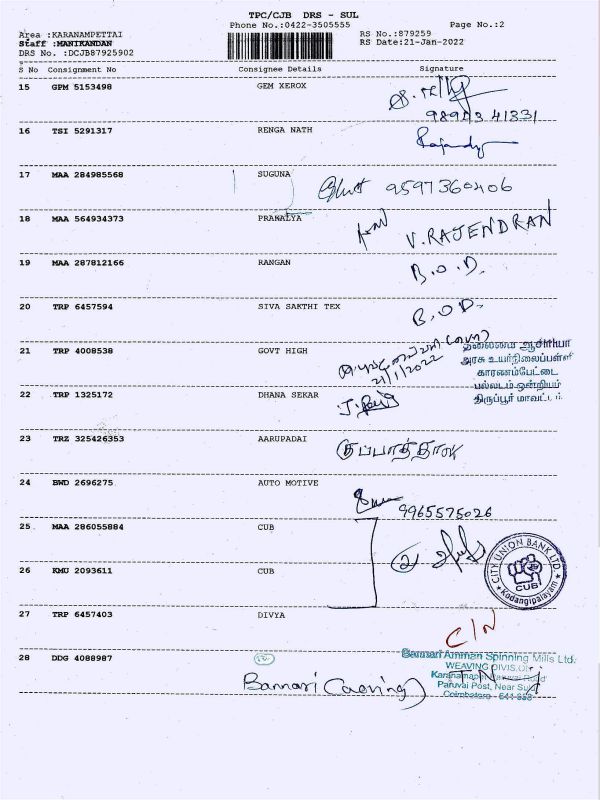 TPC/CJB DRS - SUL
Phone No.:0422-3505555
Page No.:2
Area :KARANAMPETTAI
Staff :MANIKANDAN
DRS No. :DCJB87925902
RS No.:879259
RS Date:21-Jan-2022
S No Consignment No Consignee Details Signature
15 GPM 5153498 GEM XEROX
41331
16 TSI 5291317 RENGA NATH
17 MAA 284985568 SUGUNA 9597360406
18 MAA 564934373 PRANALYA V.RAJENDRAN
19 MAA 287812166 RANGAN B.O.D.
20 TRP 6457594 SIVA SAKTHI TEX B.O.D.
21 TRP 4008538 GOVT HIGH
21/1/2022
தலைமை ஆசிரியர்
அரசு உயர்நிலைப்பள்ளி
காரணம்பேட்டை
பல்லடம் ஒன்றியம்
திருப்பூர் மாவட்டம்
22 TRP 1325172 DHANA SEKAR
23 TRZ 325426353 AARUPADAI
24 BWD 2696275 AUTO MOTIVE
9965575026
25 MAA 286055884 CUB
26 KMU 2093611 CUB
CITY UNION BANK LTD.
CUB
Kodangipalayam
27 TRP 6457403 DIVYA C/N
28 DDG 4088987
Bannari Amman Spinning Mills Ltd.
WEAVING DIVISION
Paruvai Post, Near Sulur
Coimbatore
Bannari